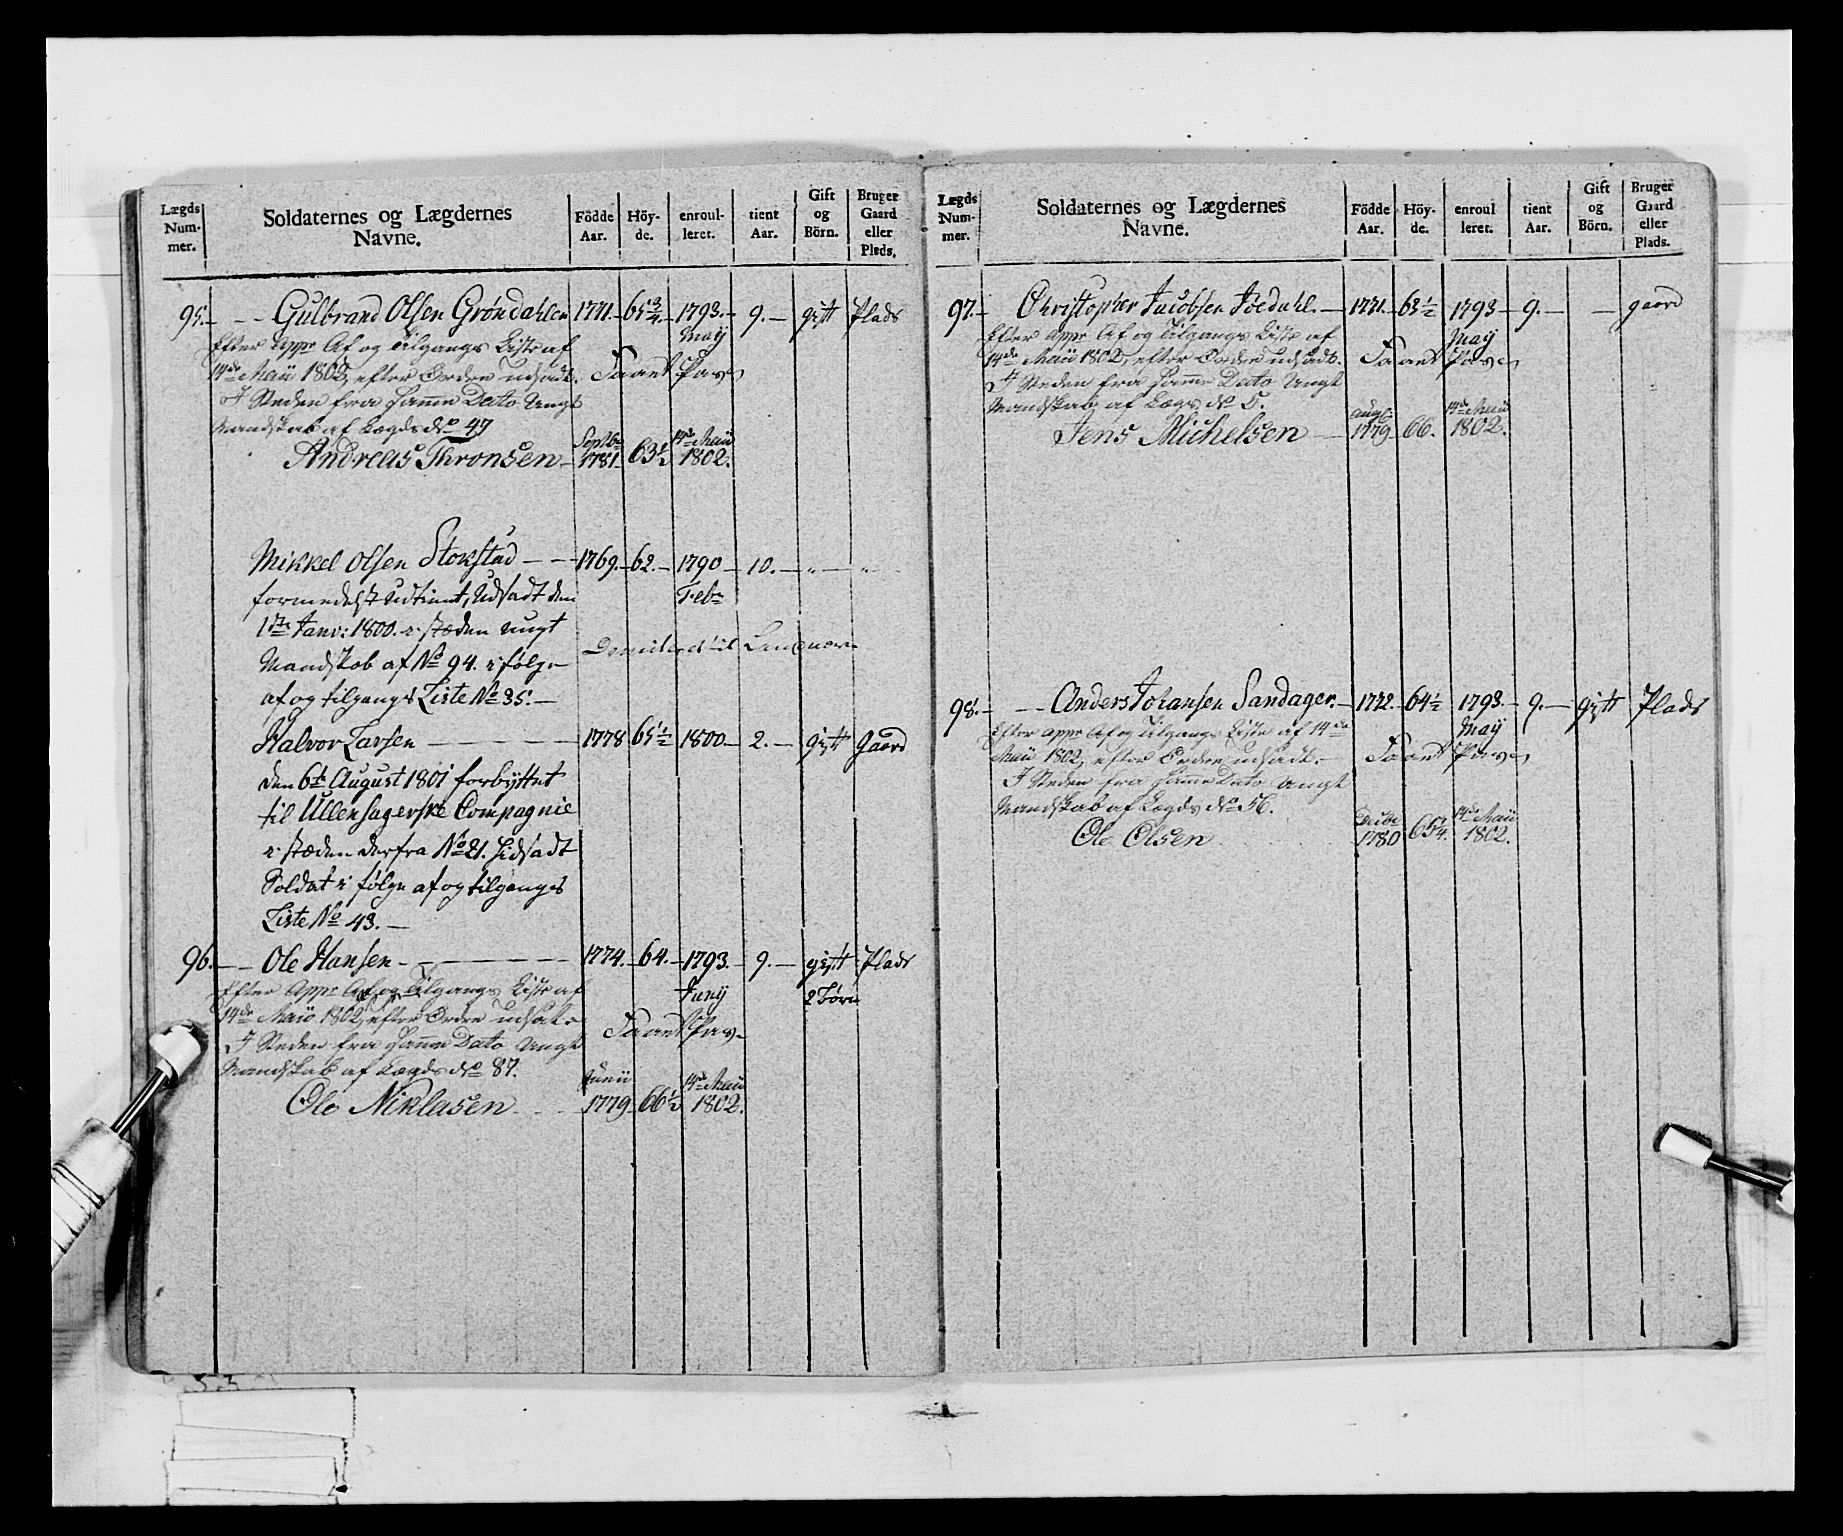 Lægds Num- mer.
Soldaternes og Lægdernes Navne.
Födde Aar.
Höy- de.
enroul- leret.
tient Aar.
Gift og Börn.
Bruger Gaard eller Plads.
95. - - - Gulbrand Olsen Grøndahlen 1771. - 65 3/4. - 1793. - 9. - gift Plads
Efter Appr Af og Tilgangs Liste af May
14de Maii 1802, efter Ordre udsadt.
I Steden fra samme Dato Ungt
Mandskab af Lægds No 47 Septbr 14de Maii
Andreas Thronsen - 1781 - 63 1/2 1802.
Mikkel Olsen Stokstad - - 1769. - 62. - 1790 - 10. - " - "
formedelst udtient, Udsadt den Febr
1ste Janv: 1800. i stæden ungt
Mandskab af No 94. i følge
af og tilgangs Liste No 35. -
Halvor Larsen - - - - 1778 65 1/2 1800. - 2. - gift Gaard
den 6te August 1801 forbyttet
til Ullensagerske Compagnie
i stæden derfra No 21. hidsadt
Soldat i følge af og tilgangs
Liste No 43. -
96. - - Ole Hansen - - - - - 1774. 64. - 1793. - 9. - gift Plads
Efter Appr Af og Tilgangs Liste af Juny 2 Börn
14de Maii 1802, efter Ordre udsat.
I Steden fra samme Dato Ungt
Mandskab af Lægds No 87. Junii 14de Maii
Ole Niklasen - - - 1779 - 66 1/2 1802.
Lægds Num- mer.
Soldaternes og Lægdernes Navne.
Födde Aar.
Höy- de.
enroul leret.
tient Aar.
Gift og Börn.
Bruger Gaard eller Plads.
97. - Christopher Jacobsen - 1771. - 63 1/2 1793 - 9. - - gaard
Efter Appr Af og Tilgangs Liste af May
14de Maii 1802, efter Ordre udsadt.
I Steden fra samme Dato Ungt
Mandskab af Lægds No 5. Aug 14de Maii
Jens Michelsen - 1779 - 66. 1802.
98. - - - Anders Johansen Sandager. - 1772. - 64 1/2 1793. - 9. - gift Plads
Efter Appr Af og Tilgangs Liste af 14de May
Maii 1802, efter Ordre udsadt. -
I Steden fra samme Dato Ungt
Mandskab af Lægds No 56. 14de Maii
Ole Olsen 1780 1802.